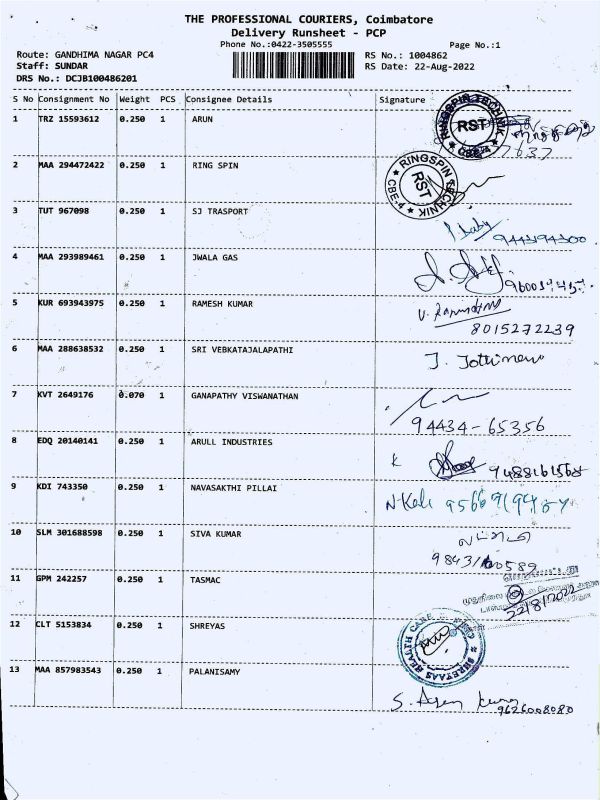 THE PROFESSIONAL COURIERS, Coimbatore
Delivery Runsheet - PCP
Phone No.:0422-3505555
Page No.:1
Route: GANDHIMA NAGAR PC4
RS No.: 1004862
Staff: SUNDAR
RS Date: 22-Aug-2022
DRS No.: DCJB100486201
S No Consignment No Weight PCS Consignee Details Signature
1 TRZ 15593612 0.250 1 ARUN
RINGSPIN TECHNIK
RST
7637
2 MAA 294472422 0.250 1 RING SPIN
RINGSPIN TECHNIK CBE-4
RST
3 TUT 967098 0.250 1 SJ TRASPORT
4 MAA 293989461 0.250 1 JWALA GAS
5 KUR 693943975 0.250 1 RAMESH KUMAR
8015272239
6 MAA 288638532 0.250 1 SRI VEBKATAJALAPATHI
7 KVT 2649176 0.070 1 GANAPATHY VISWANATHAN
94434-65356
8 EDQ 20140141 0.250 1 ARULL INDUSTRIES
9 KDI 743350 0.250 1 NAVASAKTHI PILLAI
10 SLM 301688598 0.250 1 SIVA KUMAR
11 GPM 242257 0.250 1 TASMAC
22/8/2022
12 CLT 5153834 0.250 1 SHREYAS
13 MAA 857983543 0.250 1 PALANISAMY
9626008080